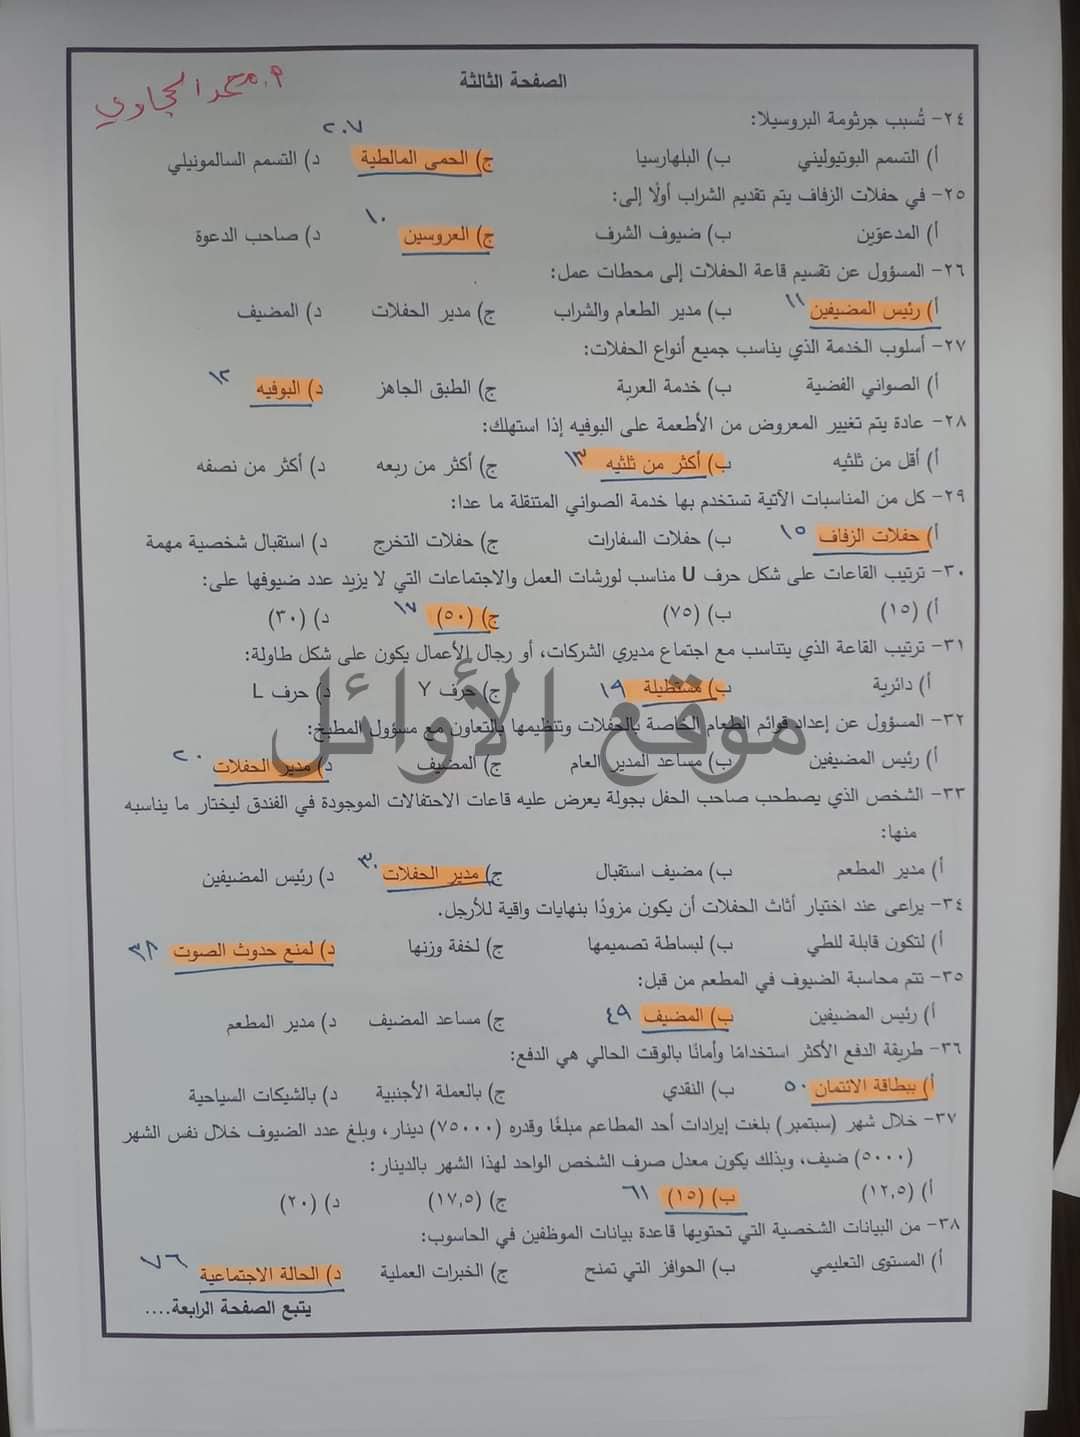 الصفحة الثالثة
م. محمد الحجاوي
٢٤- تُسبب جرثومة البروسيلا:
٢٠٧
أ) التسمم البوتيوليني ب) البلهارسيا ج) الحمى المالطية د) التسمم السالمونيلي
٢٥- في حفلات الزفاف يتم تقديم الشراب أولًا إلى:
١٠
أ) المدعوّين ب) ضيوف الشرف ج) العروسين د) صاحب الدعوة
٢٦- المسؤول عن تقسيم قاعة الحفلات إلى محطات عمل:
أ) رئيس المضيفين ١١ ب) مدير الطعام والشراب ج) مدير الحفلات د) المضيف
٢٧- أسلوب الخدمة الذي يناسب جميع أنواع الحفلات:
أ) الصواني الفضية ب) خدمة العربة ج) الطبق الجاهز د) البوفيه ١٢
٢٨- عادة يتم تغيير المعروض من الأطعمة على البوفيه إذا استهلك:
أ) أقل من ثلثيه ب) أكثر من ثلثيه ١٣ ج) أكثر من ربعه د) أكثر من نصفه
٢٩- كل من المناسبات الآتية تستخدم بها خدمة الصواني المتنقلة ما عدا:
أ) حفلات الزفاف ١٥ ب) حفلات السفارات ج) حفلات التخرج د) استقبال شخصية مهمة
٣٠- ترتيب القاعات على شكل حرف U مناسب لورشات العمل والاجتماعات التي لا يزيد عدد ضيوفها على:
أ) (١٥) ب) (٧٥) ج) (٥٠) ١٧ د) (٣٠)
٣١- ترتيب القاعة الذي يتناسب مع اجتماع مديري الشركات، أو رجال الأعمال يكون على شكل طاولة:
أ) دائرية ب) مستطيلة ١٩ ج) حرف Y د) حرف L
موقع الأوائل
٣٢- المسؤول عن إعداد قوائم الطعام الخاصة بالحفلات وتنظيمها بالتعاون مع مسؤول المطبخ:
أ) رئيس المضيفين ب) مساعد المدير العام ج) المضيف د) مدير الحفلات ٢٠
٣٣- الشخص الذي يصطحب صاحب الحفل بجولة يعرض عليه قاعات الاحتفالات الموجودة في الفندق ليختار ما يناسبه
منها:
أ) مدير المطعم ب) مضيف استقبال ج) مدير الحفلات ٣٠ د) رئيس المضيفين
٣٤- يراعى عند اختيار أثاث الحفلات أن يكون مزودًا بنهايات واقية للأرجل.
أ) لتكون قابلة للطي ب) لبساطة تصميمها ج) لخفة وزنها د) لمنع حدوث الصوت ٣٨
٣٥- تتم محاسبة الضيوف في المطعم من قبل:
أ) رئيس المضيفين ب) المضيف ٤٩ ج) مساعد المضيف د) مدير المطعم
٣٦- طريقة الدفع الأكثر استخدامًا وأمانًا بالوقت الحالي هي الدفع:
أ) ببطاقة الائتمان ٥٠ ب) النقدي ج) بالعملة الأجنبية د) بالشيكات السياحية
٣٧- خلال شهر (سبتمبر) بلغت إيرادات أحد المطاعم مبلغًا وقدره (٧٥٠٠٠) دينار، وبلغ عدد الضيوف خلال نفس الشهر
(٥٠٠٠) ضيف، وبذلك يكون معدل صرف الشخص الواحد لهذا الشهر بالدينار:
أ) (١٢,٥) ب) (١٥) ٦١ ج) (١٧,٥) د) (٢٠)
٣٨- من البيانات الشخصية التي تحتويها قاعدة بيانات الموظفين في الحاسوب:
أ) المستوى التعليمي ب) الحوافز التي تمنح ج) الخبرات العملية د) الحالة الاجتماعية ٧٦
يتبع الصفحة الرابعة....